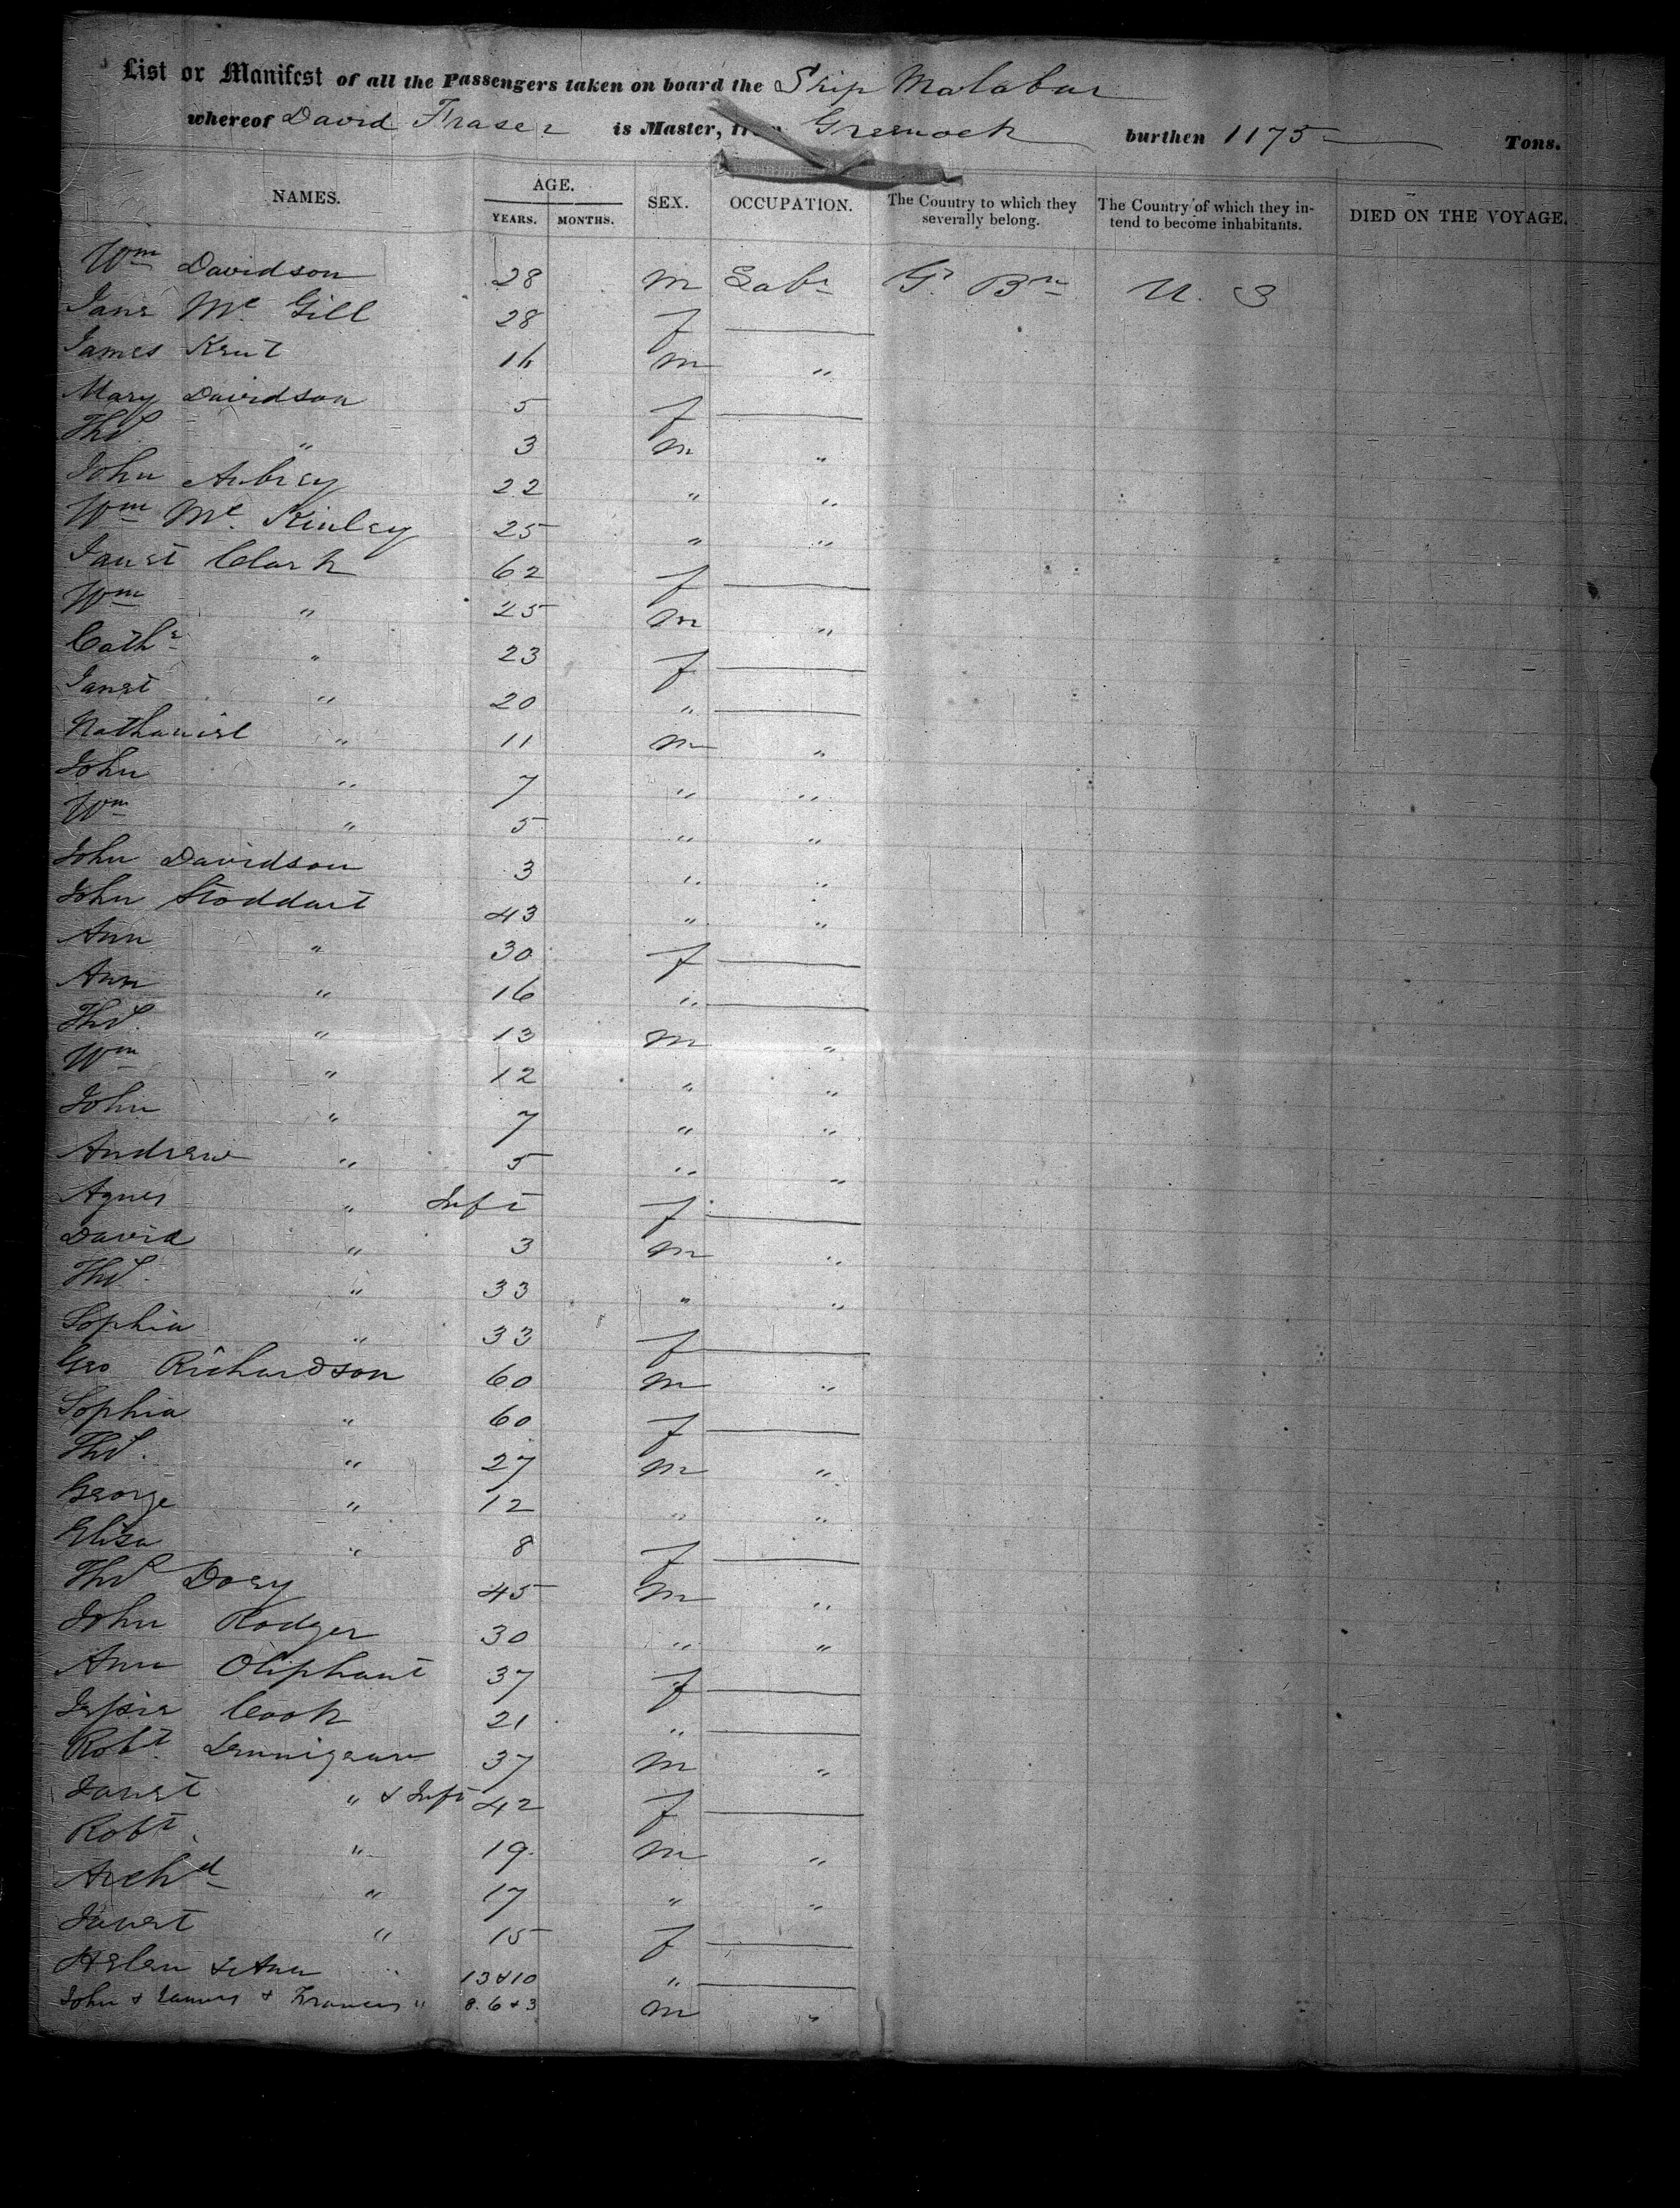 List or Manifest of all the Passengers taken on board the Ship Malabar
whereof David Fraser is Master, from Greenock burthen 1175 Tons.
NAMES. AGE. YEARS. MONTHS. SEX. OCCUPATION. The Country to which they severally belong. The Country of which they intend to become inhabitants. DIED ON THE VOYAGE.
Wm Davidson 28 m Labr Gt Bn U. S
Jane Mc Gill 28 f —
James Kent 16 m "
Mary Davidson 5 f —
Thos. " 3 m "
John Aubrey 22 " "
Wm Mc Kinley 25 " "
Janet Clark 62 f —
Wm " 25 m "
Cathe " 23 f —
Janet " 20 " —
Nathaniel " 11 m "
John " 7 " "
Wm " 5 " "
John Davidson 3 " "
John Stoddart 43 " "
Ann " 30 f —
Ann " 16 " —
Thos. " 13 m "
Wm " 12 " "
John " 7 " "
Andrew " 5 " "
Agnes " Inft f —
David " 3 m "
Thos. " 33 " "
Sophia " 33 f —
Geo Richardson 60 m "
Sophia " 60 f —
Thos. " 27 m "
George " 12 " "
Eliza " 8 f —
Thos Doey 45 m "
John Rodger 30 " "
Ann Oliphant 37 f —
Jessie Cook 21 " —
Robt. 37 m "
Janet " & Inft 42 f —
Robt. " 19 m "
Archd " 17 " "
Janet " 15 f —
Helen & Ann " 13 & 10 " —
John & James & Francis " 8. 6 & 3 m "